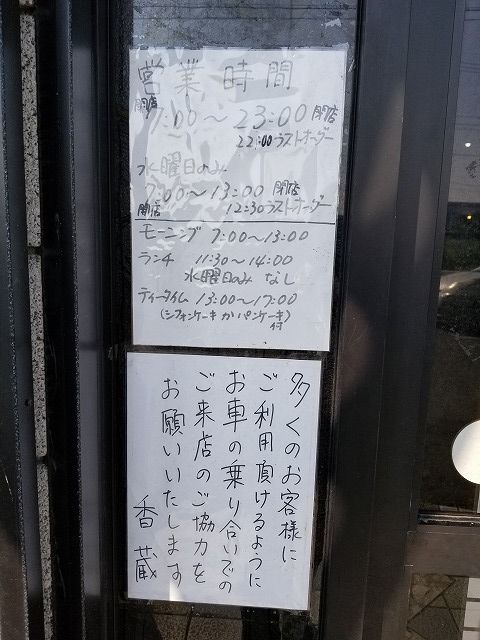 営業時間
開店 7:00～23:00 閉店
22:00ラストオーダー
水曜日のみ
7:00～13:00 閉店
開店 12:30ラストオーダー
モーニング 7:00～13:00
ランチ 11:30～14:00
水曜日のみ なし
ティータイム 13:00～17:00
(シフォンケーキかパンケーキ)付
多くのお客様に
ご利用頂けるように
お車の乗り合いでの
ご来店のご協力を
お願いいたします
香蔵